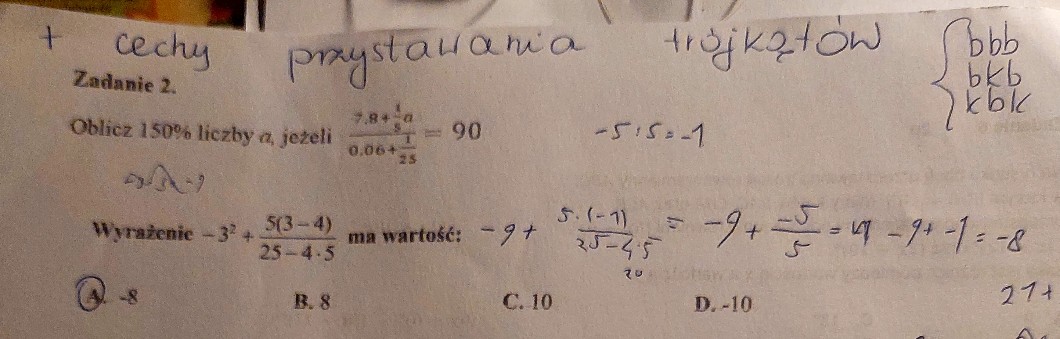 + cechy przystawania trójkątów { bbb
bkb
kbk
Zadanie 2.
Oblicz 150% liczby a, jeżeli (7,8+1/5a)/(0,06+1/25) = 90
-5:5=-1
Wyrażenie -3² + 5(3-4)/(25-4·5) ma wartość: -9+ 5·(-1)/(25-4·5) = -9+ -5/5 = -9+-1=-8
20
A. -8 B. 8 C. 10 D. -10
21+